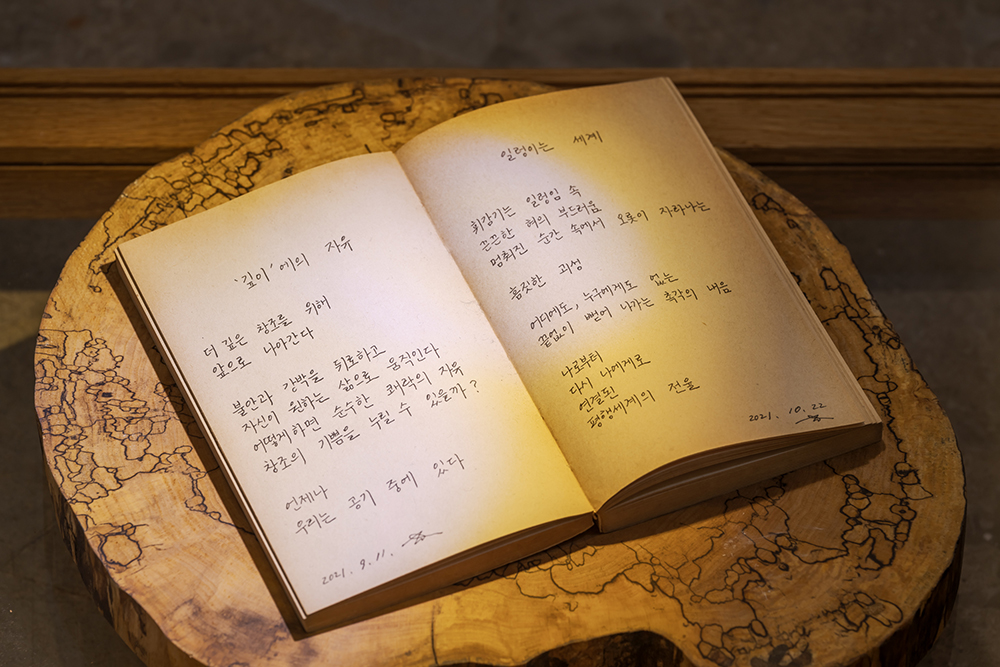 '깊이' 에의 자유
더 깊은 창조를 위해
앞으로 나아간다
불안과 강박을 뒤로하고
자신이 원하는 삶으로 움직인다
어떻게하면 순수한 쾌락의 자유
창조의 기쁨을 누릴 수 있을까?
언제나
우리는 공기 중에 있다
2021. 9. 11.
일렁이는 세계
휘감기는 일렁임 속
끈끈한 혀의 부드러움
멈춰진 순간 속에서 오롯이 자라나는
흠칫한 괴성
어디에도, 누구에게도 없는
끝없이 뻗어 나가는 촉각의 내음
나로부터
다시 나에게로
연결된
평행세계의 전율
2021. 10. 22